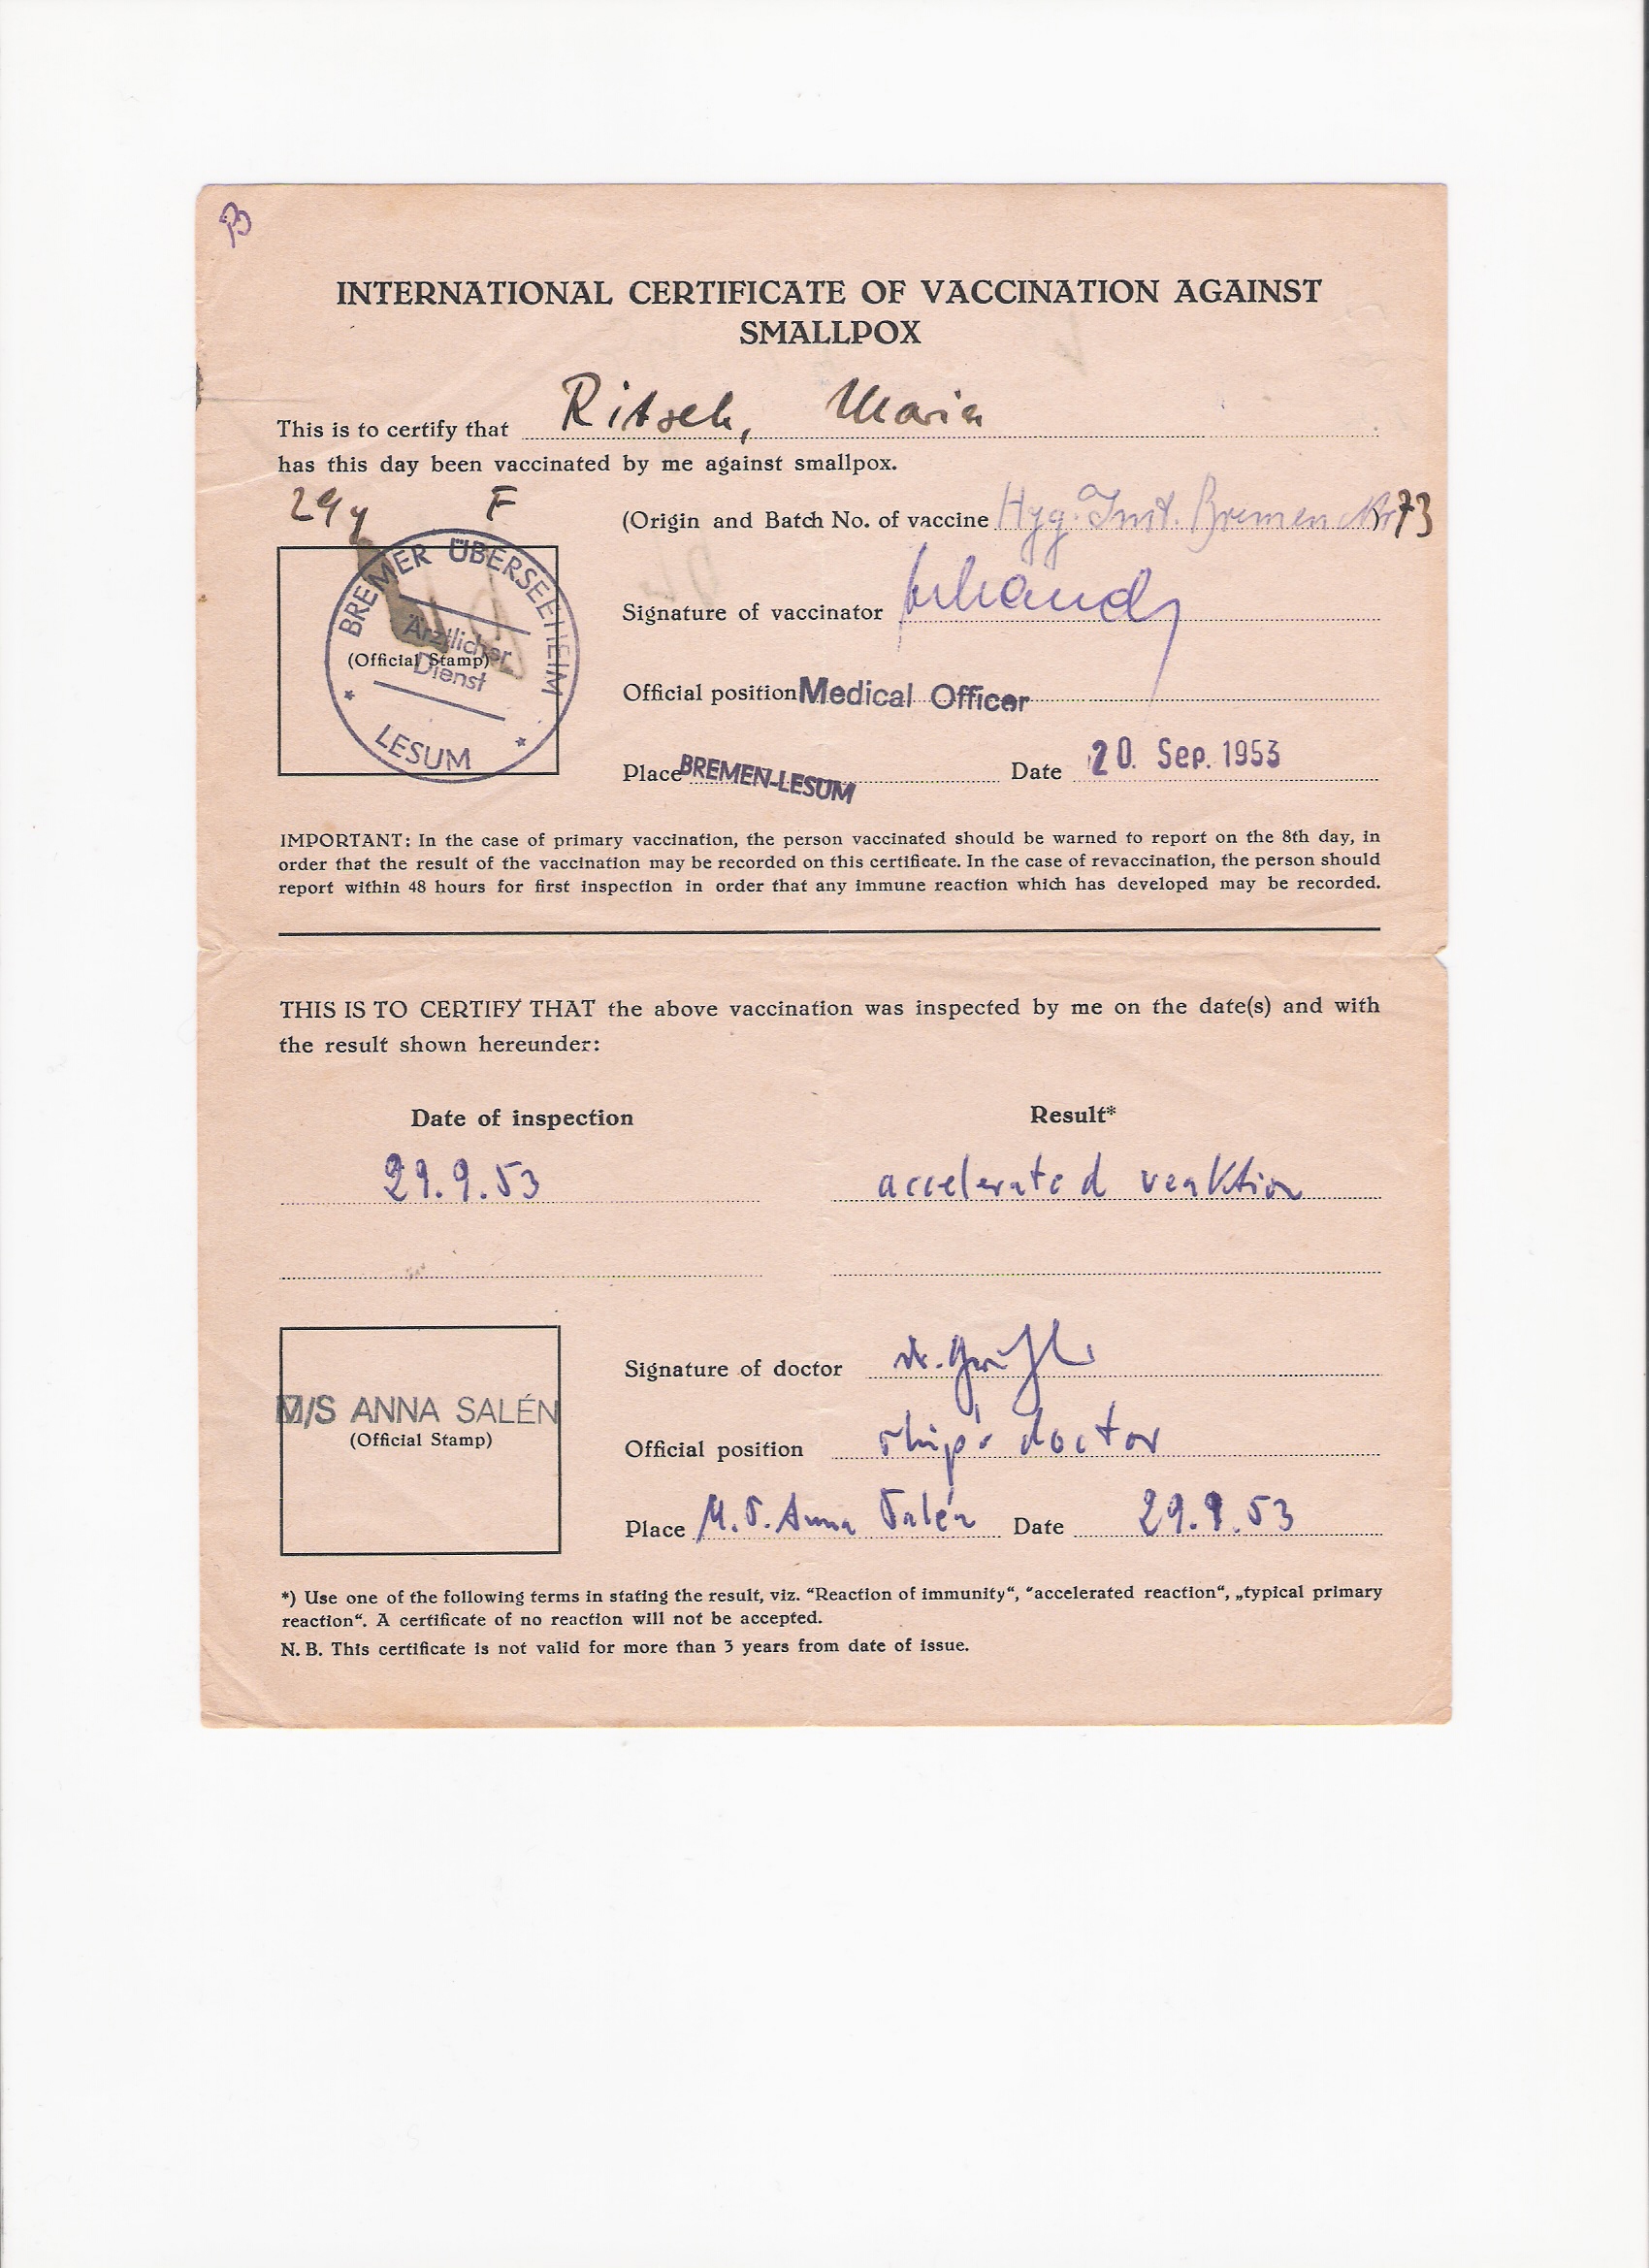 B
INTERNATIONAL CERTIFICATE OF VACCINATION AGAINST
SMALLPOX
This is to certify that Ritsch, Maria
has this day been vaccinated by me against smallpox.
29y F
(Origin and Batch No. of vaccine Hyg. Inst. Bremen Nr 73)
BREMER ÜBERSEEHEIM
Ärztlicher
Dienst
LESUM
(Official Stamp)
Signature of vaccinator
Official position Medical Officer
Place BREMEN-LESUM Date 20. Sep. 1953
IMPORTANT: In the case of primary vaccination, the person vaccinated should be warned to report on the 8th day, in
order that the result of the vaccination may be recorded on this certificate. In the case of revaccination, the person should
report within 48 hours for first inspection in order that any immune reaction which has developed may be recorded.
THIS IS TO CERTIFY THAT the above vaccination was inspected by me on the date(s) and with
the result shown hereunder:
Date of inspection Result*
29.9.53 accelerated reaktion
M/S ANNA SALÉN
(Official Stamp)
Signature of doctor dr.
Official position ship's doctor
Place M.S. Anna Salén Date 29.9.53
*) Use one of the following terms in stating the result, viz. “Reaction of immunity“, “accelerated reaction“, „typical primary
reaction“. A certificate of no reaction will not be accepted.
N. B. This certificate is not valid for more than 3 years from date of issue.